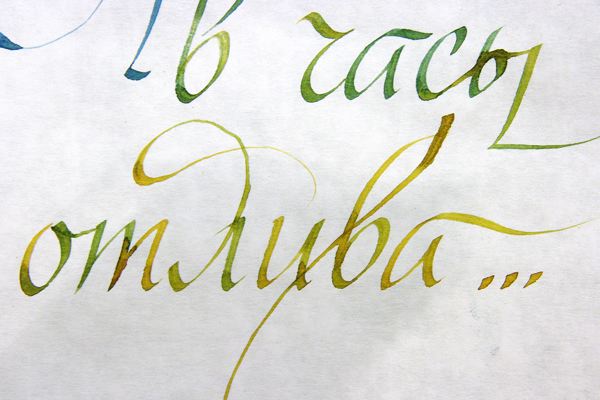 в часы
отлива...